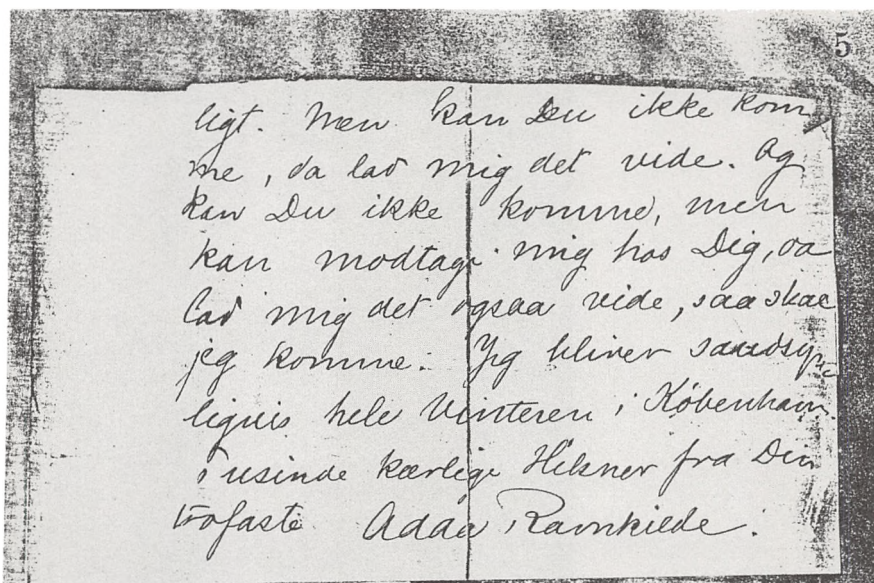 5
ligt. Men kan Du ikke kom
me, da lad mig det vide. Og
kan Du ikke komme, men
kan modtage mig hos Dig, da
lad mig det ogsaa vide, saa skal
jeg komme. Jeg bliver sandsyn
ligvis hele Vinteren i København.
Tusinde kærlige Hilsner fra Din
trofaste Adda Ravnkilde.